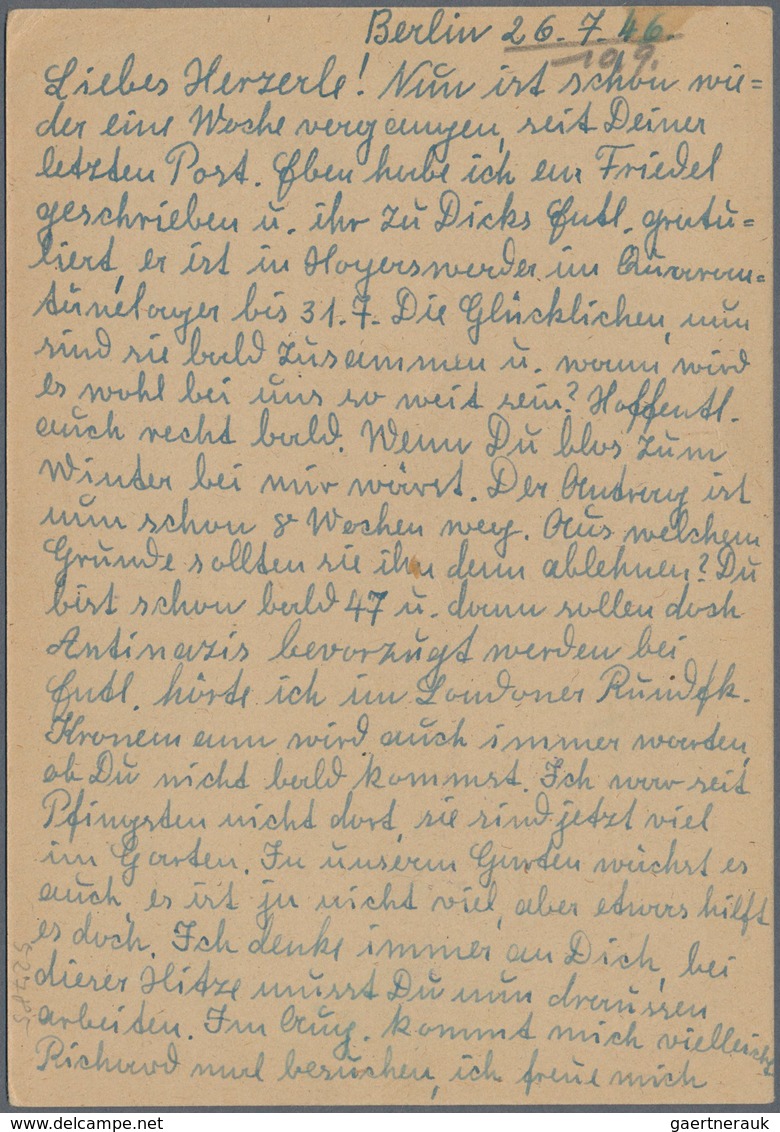 Berlin 26.7.46.
199.
Liebes Herzerle! Nun ist schon wie=
der eine Woche vergangen, seit Deiner
letzten Post. Eben habe ich an Friedel
geschrieben u. ihr zu Dicks Entl. gratu=
liert, er ist in Hoyerswerder im Quaran=
tänelager bis 31.7. Die Glücklichen, nun
sind sie bald zusammen u. wann wird
es wohl bei uns so weit sein? Hoffentl.
auch recht bald. Wenn Du blos zum
Winter bei mir wärst. Der Antrag ist
nun schon 8 Wochen weg. Aus welchem
Grunde sollten sie ihn denn ablehnen? Du
bist schon bald 47 u. dann sollen doch
Antinazis bevorzugt werden bei
Entl. hörte ich im Londoner Rundfk.
Kronemann wird auch immer warten,
ob Du nicht bald kommst. Ich war seit
Pfingsten nicht dort, sie sind jetzt viel
im Garten. In unserm Garten wächst es
auch, es ist ja nicht viel, aber etwas hilft
es doch. Ich denke immer an Dich, bei
dieser Hitze musst Du nun draussen
arbeiten. Im Aug. kommt mich vielleicht
Richard mal besuchen, ich freue mich
gaertnerauk